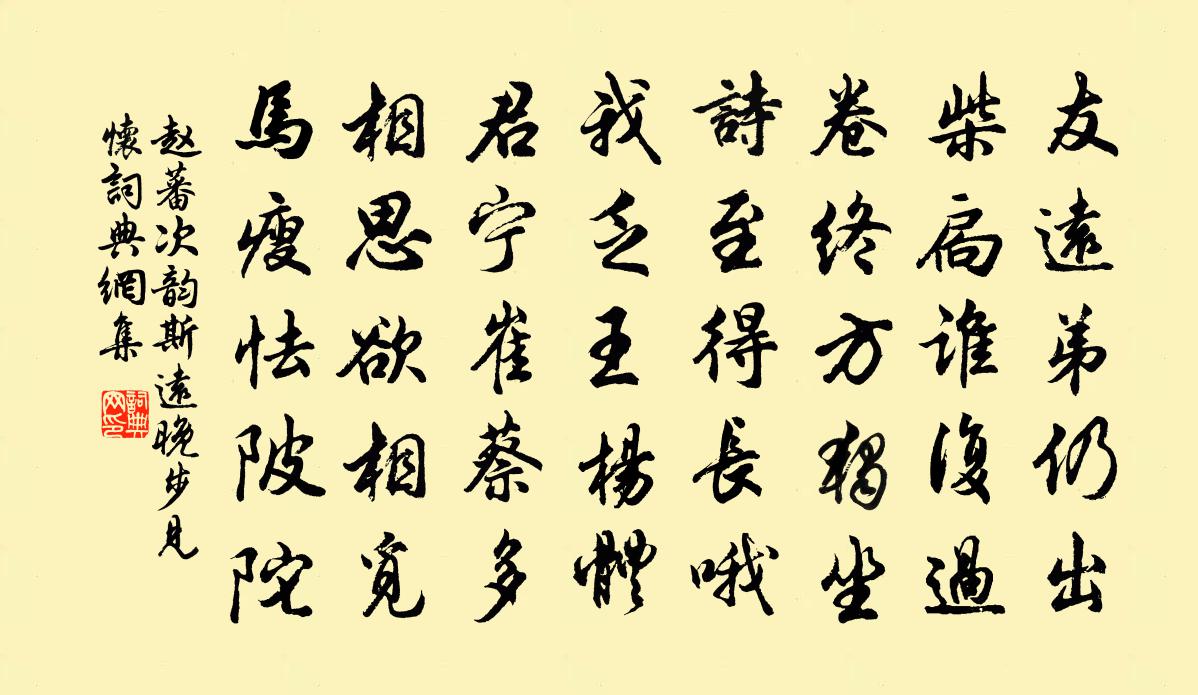 友遠弟仍出
柴扃誰復過
卷終方獨坐
詩至得長哦
我乏王楊體
君宁崔蔡多
相思欲相覓
馬瘦怯陂陀
赵蕃次韵斯遠晚步見
懷詞典網集
詞典
网印